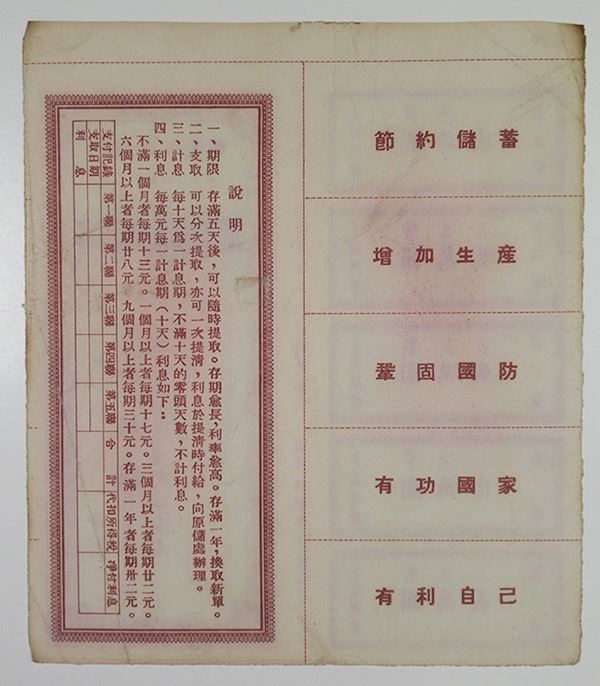 說明
一、期限　存滿五天後，可以隨時提取。存期愈長，利率愈高。存滿一年，換取新單。
二、支取　可以分次提取，亦可一次提清，利息於提清時付給，向原儲處辦理。
三、計息　每十天爲一計息期，不滿十天的零頭天數，不計利息。
四、利息　每萬元每一計息期（十天）利息如下：
不滿一個月者每期十三元。一個月以上者每期十七元。三個月以上者每期廿二元。
六個月以上者每期廿八元。九個月以上者每期三十元。存滿一年者每期卅二元。
支付記錄　第一聯　第二聯　第三聯　第四聯　第五聯　合計　代扣所得稅　淨付利息
支取日期
利息
節約儲蓄
增加生産
鞏固國防
有功國家
有利自己